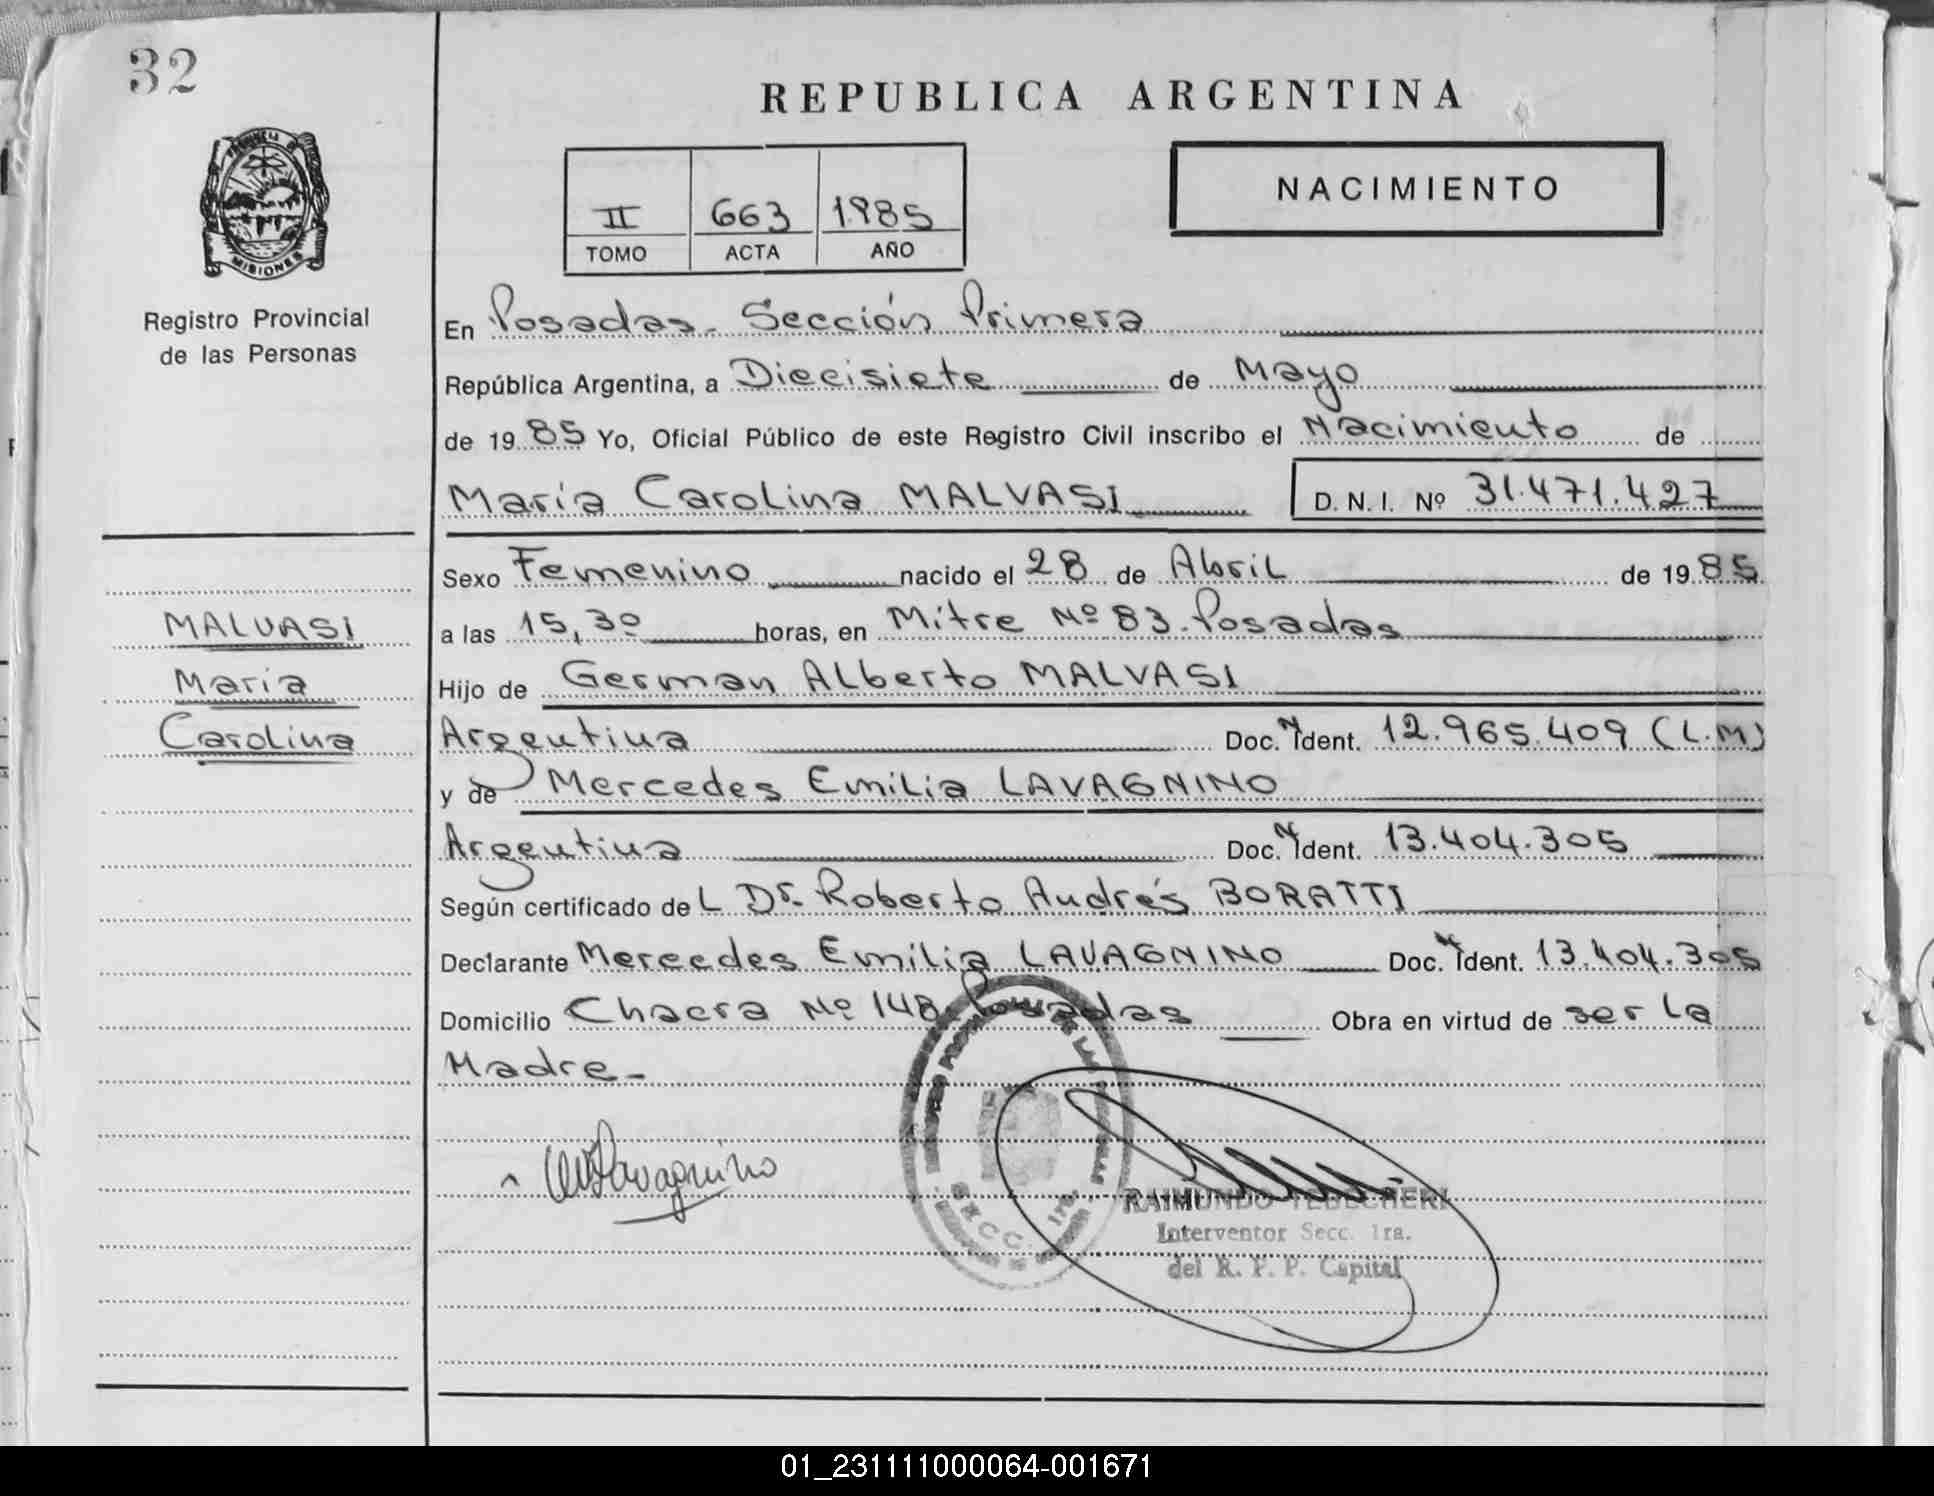 32
REPUBLICA ARGENTINA
PROVINCIA D
MISIONES
Registro Provincial
de las Personas
II 663 1985
TOMO ACTA AÑO
NACIMIENTO
En Posadas. Sección Primera
República Argentina, a Diecisiete de Mayo
de 1985 Yo, Oficial Público de este Registro Civil inscribo el Nacimiento de
María Carolina MALVASI D. N. I. Nº 31.471.427
Sexo Femenino nacido el 28 de Abril de 1985
a las 15,30 horas, en Mitre Nº 83. Posadas
Hijo de German Alberto MALVASI
Argentina Doc. N Ident. 12.965.409 (L.M)
y de Mercedes Emilia LAVAGNINO
Argentina Doc. N Ident. 13.404.305
Según certificado deL Dr. Roberto Andrés BORATTI
Declarante Mercedes Emilia LAVAGNINO Doc. N Ident. 13.404.305
Domicilio Chacra Nº 148 Posadas Obra en virtud de ser la
Madre-
MALVASI
María
Carolina
Lavagnino
SECC. 1ra.
RAIMUNDO TEDECHERI
Interventor Secc. 1ra.
del R. P. P. Capital
01_231111000064-001671